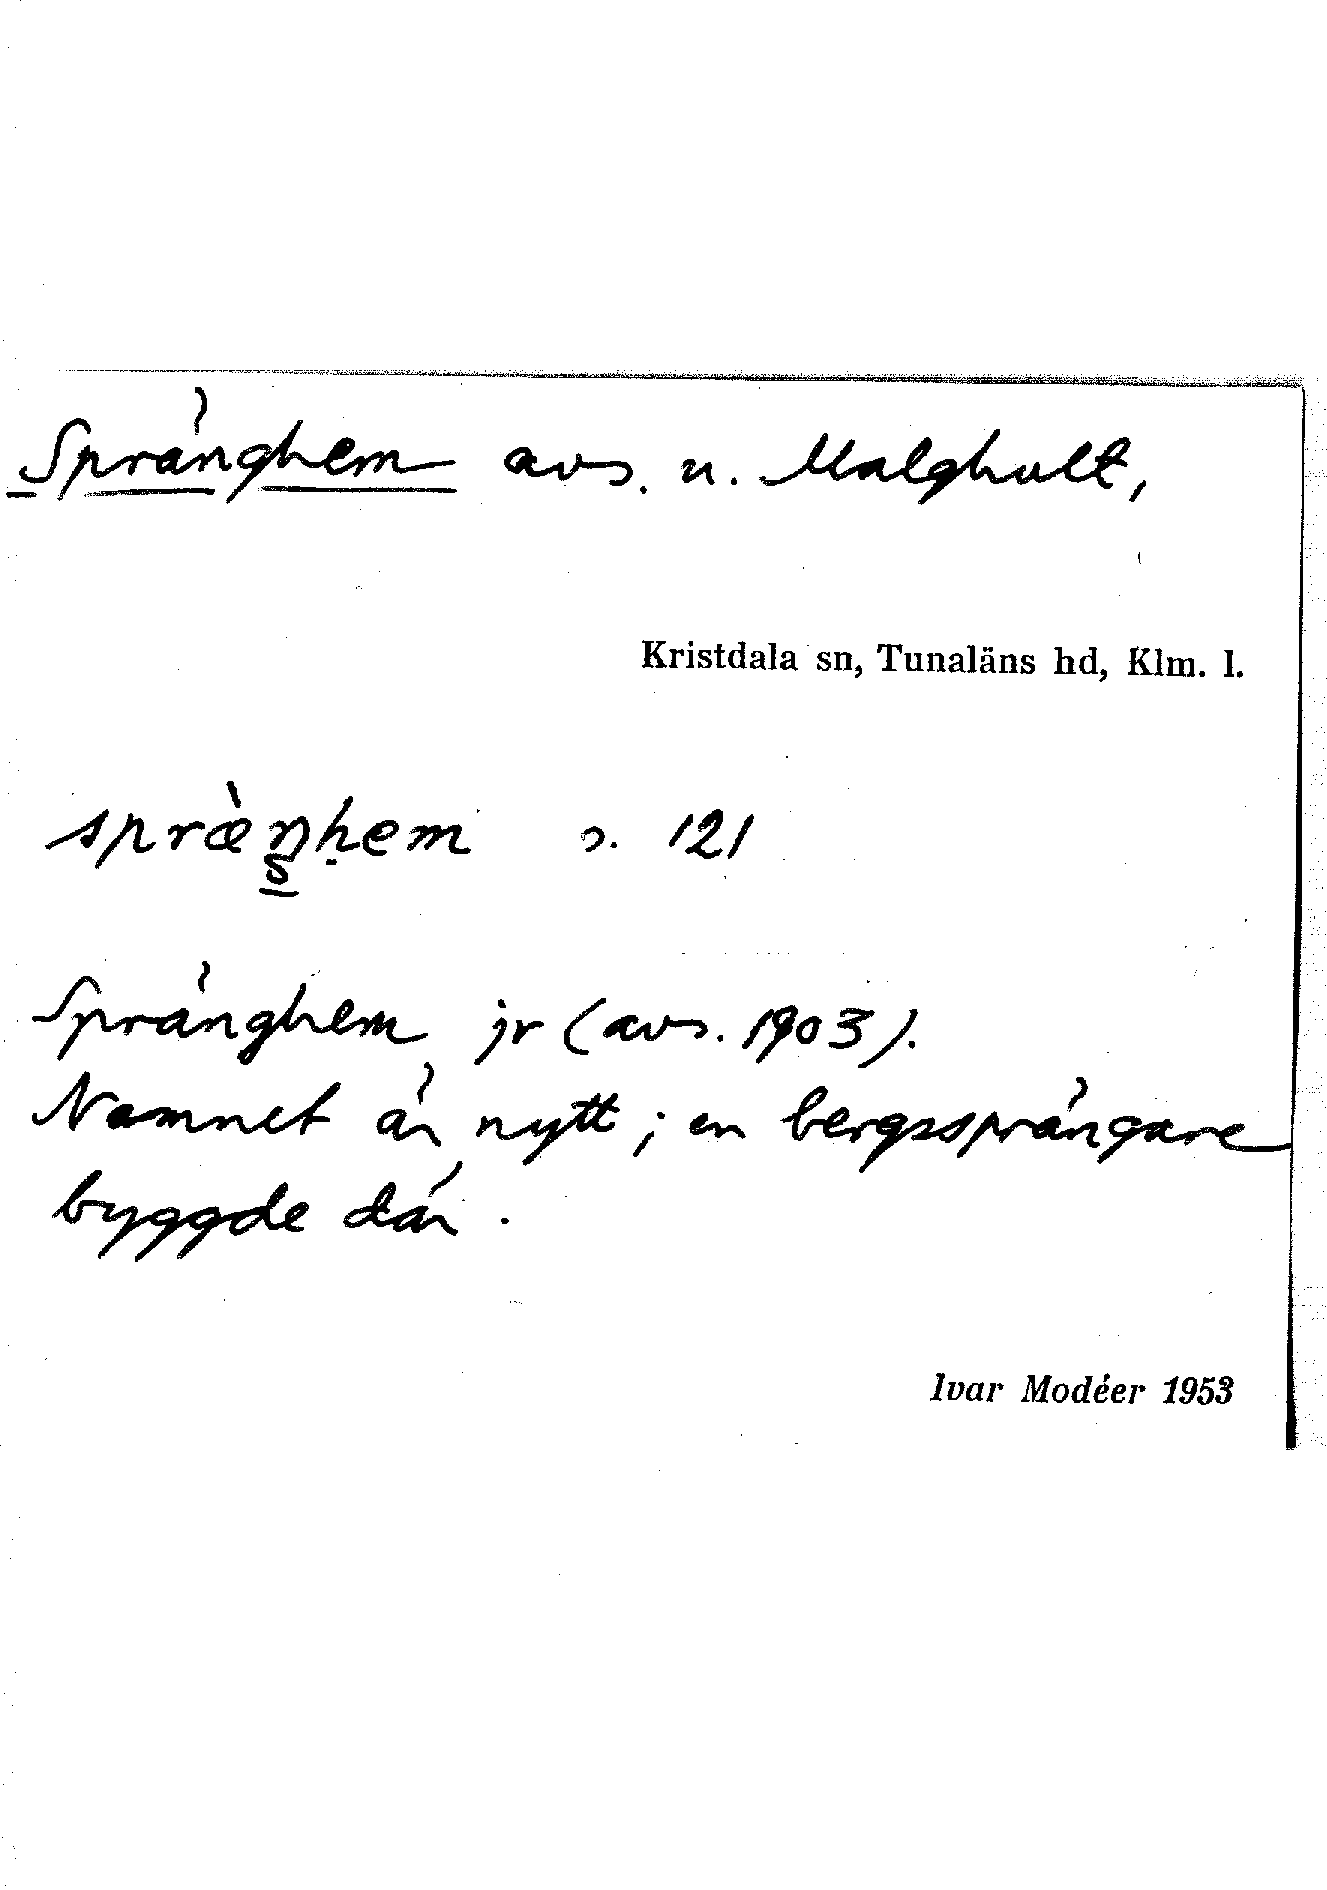 Spränghem avs. u. Malghult,
Kristdala sn, Tunaläns hd, Klm. l.
s. 121
Spränghem jr (avs. 1903).
Namnet är nytt; en bergssprängare
byggde där.
Ivar Modéer 1953